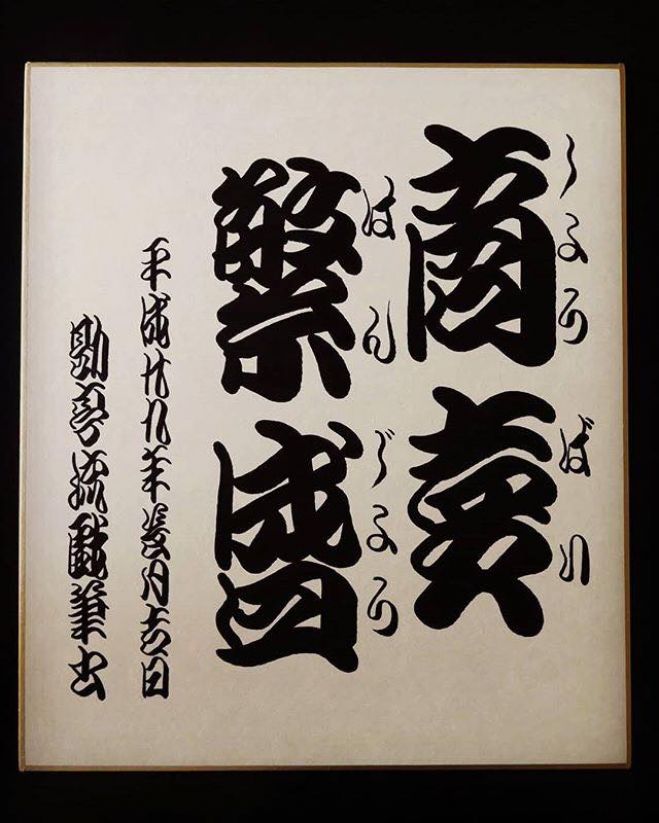 商賣
しようばい
繁盛
はんじよう
平成廿九年月吉日
勘亭流戯筆